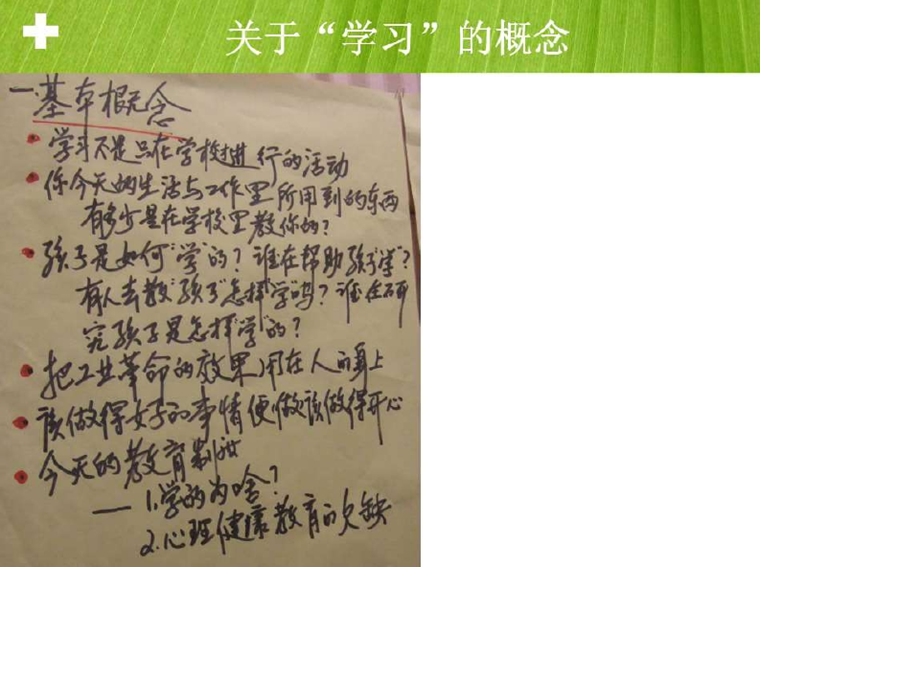 关于“学习”的概念
一.基本概念
• 学习不是只在学校进行的活动
• 你今天的生活与工作里所用到的东西
有多少是在学校里教你的?
• 孩子是如何“学”的? 谁在帮助孩子“学”?
有人去教“孩子”怎样“学”吗? 谁在研
究孩子是怎样“学”的?
• 把工业革命的效果用在人的身上
• 该做得好的事情便做,该做得开心
• 今天的教育制
— 1.学的为啥?
2.心理健康教育的欠缺